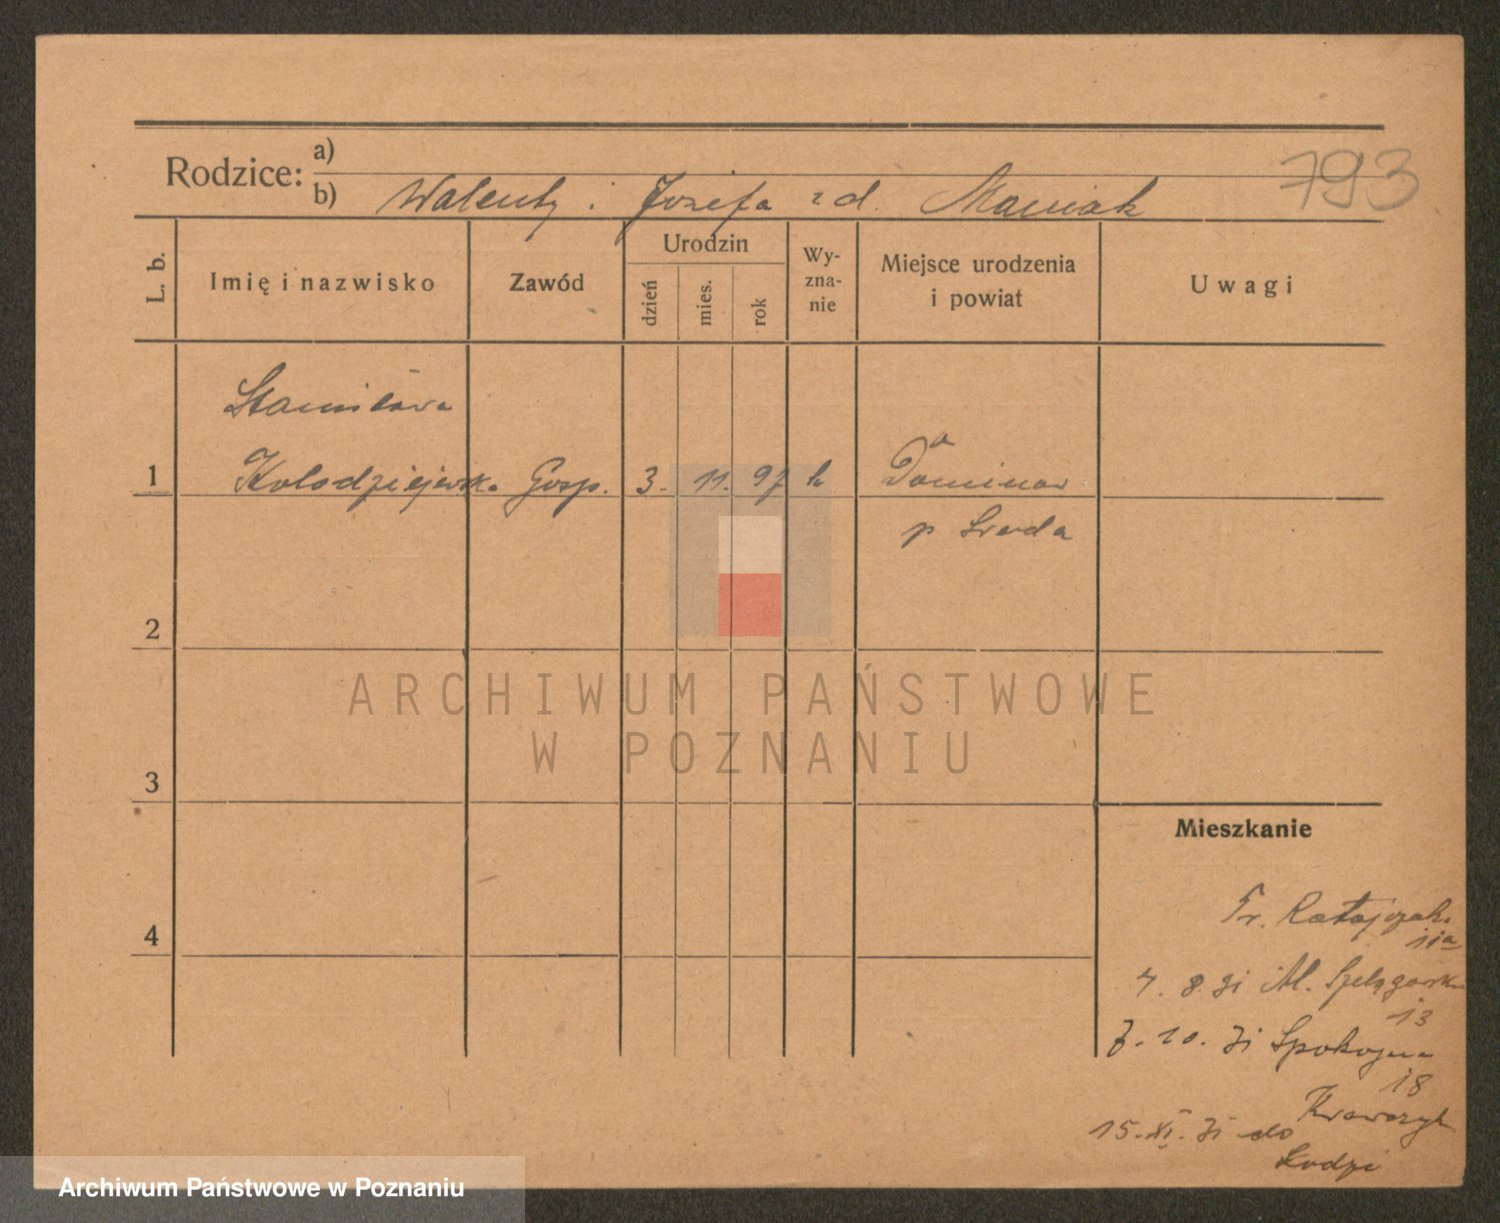 793
Rodzice: a)
b) Walenty i Józefa z d. Maniak
L. b.
Imię i nazwisko
Zawód
Urodzin
dzień
mies.
rok
Wy-
zna-
nie
Miejsce urodzenia
i powiat
Uwagi
Stanisława
1 Kołodziejewska Gosp. 3. 11. 97 k
p Środa
2
3
4
Mieszkanie
Fr. Ratajczak.
11a
4. 8. 31 Al. Szelągowska
13
7. 10. 31 Spokojna
18
Krawczyk
15. XI. 31 do
Łodzi
ARCHIWUM PAŃSTWOWE
W POZNANIU
Archiwum Państwowe w Poznaniu